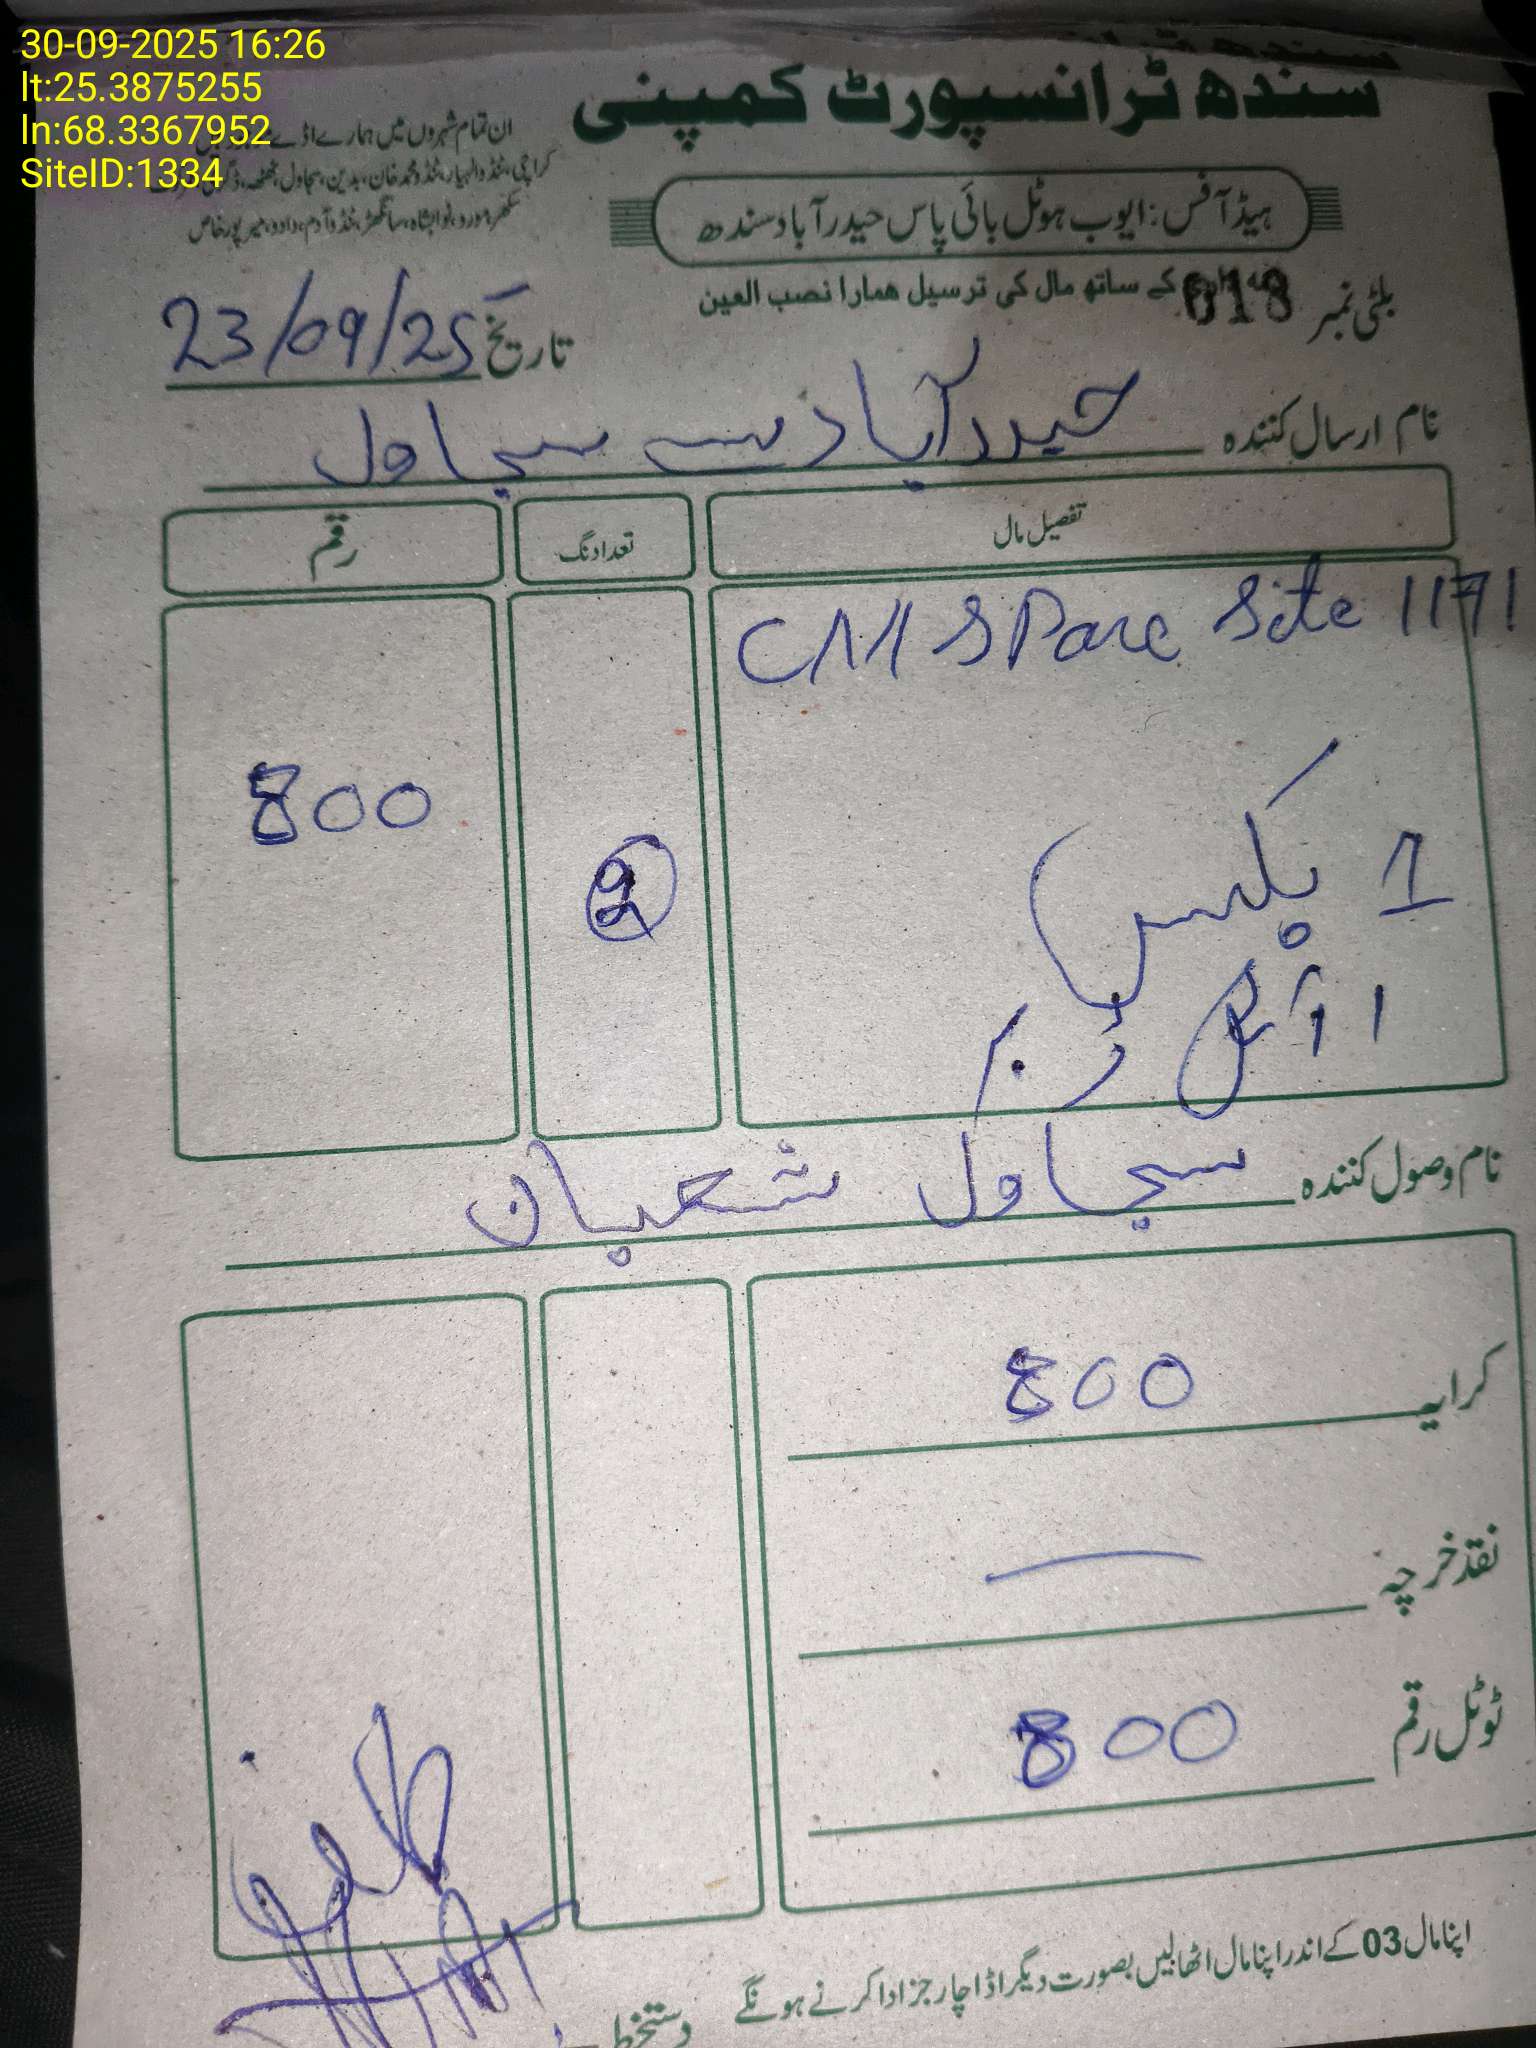 30-09-2025 16:26
lt:25.3875255
ln:68.3367952
SiteID:1334
سندھ ٹرانسپورٹ کمپنی
ان تمام شہروں میں ہمارے اڈے
کراچی، ٹنڈوالہیار، ٹنڈو محمد خان، بدین، سجاول، ٹھٹھہ، ڈگری
سکھر، مورو، نوابشاہ، سانگھڑ، ٹنڈو آدم، دادو، میرپور خاص
ہیڈ آفس: ایوب ہوٹل بائی پاس حیدرآباد سندھ
کے ساتھ مال کی ترسیل ھمارا نصب العین
بلٹی نمبر 018
تاریخ 23/09/25
نام ارسال کنندہ حیدرآباد سے سجاول
تفصیل مال تعداد نگ رقم
CM SPare Site 1171
1 بکس
1 آئل ربر
2
800
نام وصول کنندہ سجاول شعبان
کرایہ 800
نقد خرچہ —
ٹوٹل رقم 800
اپنا مال 03 کے اندر اپنا مال اٹھالیں بصورت دیگر اڈا چارجز ادا کرنے ہونگے
دستخط